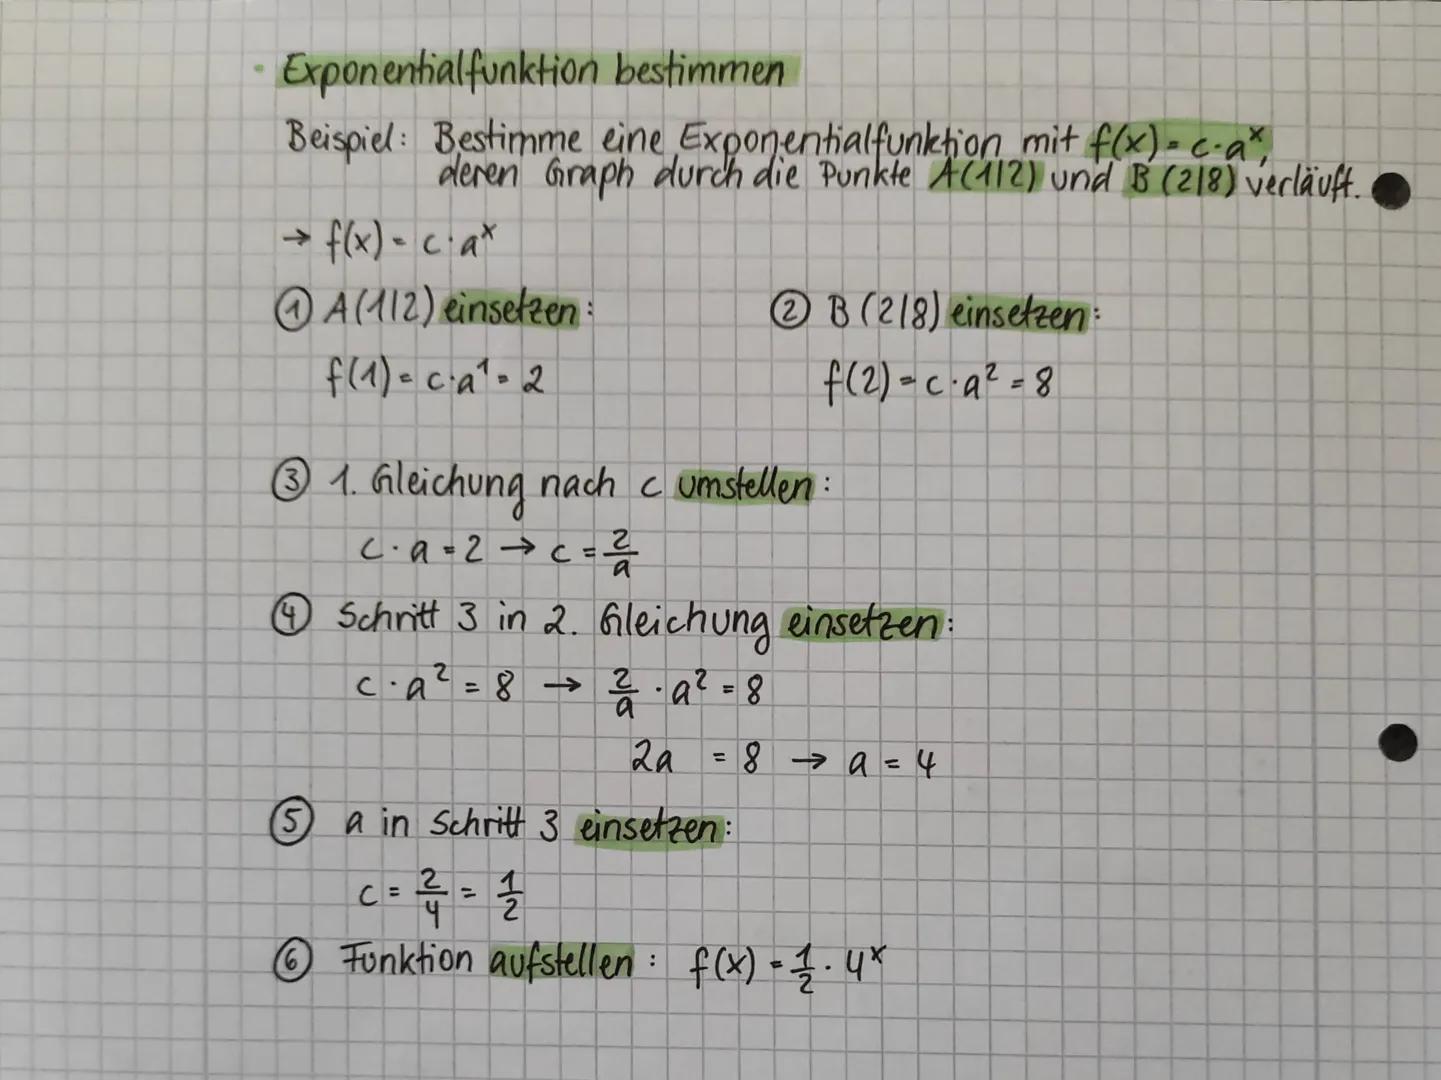 • Exponentialfunktion bestimmen
Beispiel: Bestimme eine Exponentialfunktion mit f(x) = c·aˣ,
deren Graph durch die Punkte A(1|2) und B(2|8) verläuft.
→ f(x) = c·aˣ
① A(1|2) einsetzen: ② B(2|8) einsetzen:
f(1) = c·a¹ = 2 f(2) = c·a² = 8
③ 1. Gleichung nach c umstellen:
c·a = 2 → c = 2/a
④ Schritt 3 in 2. Gleichung einsetzen:
c·a² = 8 → 2/a · a² = 8
2a = 8 → a = 4
⑤ a in Schritt 3 einsetzen:
c = 2/4 = 1/2
⑥ Funktion aufstellen: f(x) = 1/2 · 4ˣ